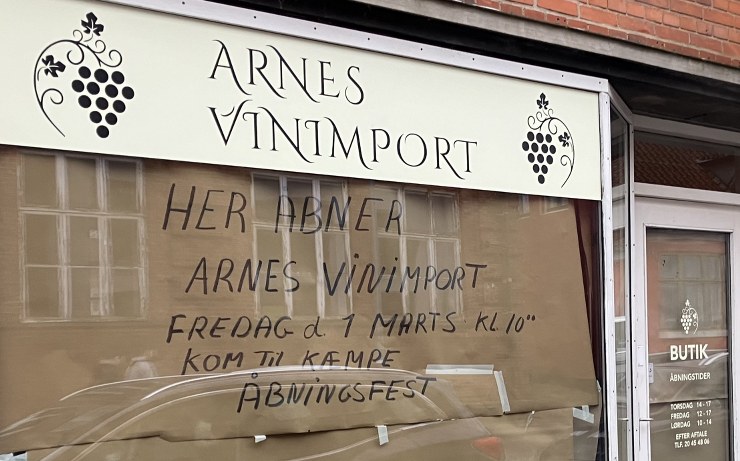 ARNES
VINIMPORT
HER ABNER
ARNES VINIMPORT
FREDAG d. 1 MARTS KL. 10"
KOM TIL KÆMPE
ÅBNINGSFEST
BUTIK
ÅBNINGSTIDER
TORSDAG 14 - 17
FREDAG 12 - 17
LØRDAG 10 - 14
EFTER AFTALE
TLF. 20 45 48 06